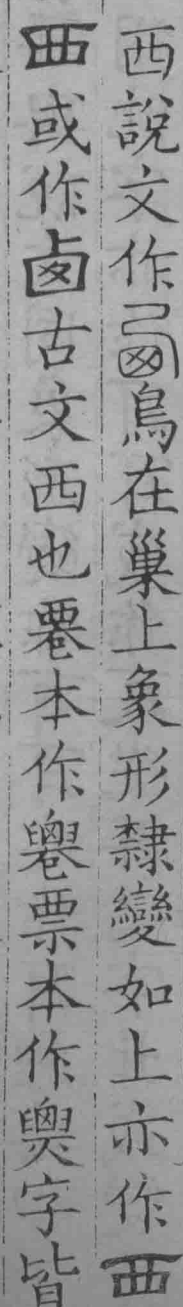 西說文作𠧧鳥在巢上象形隸變如上亦作覀
覀或作卥古文西也䙴本作𠨧票本作㶾字皆